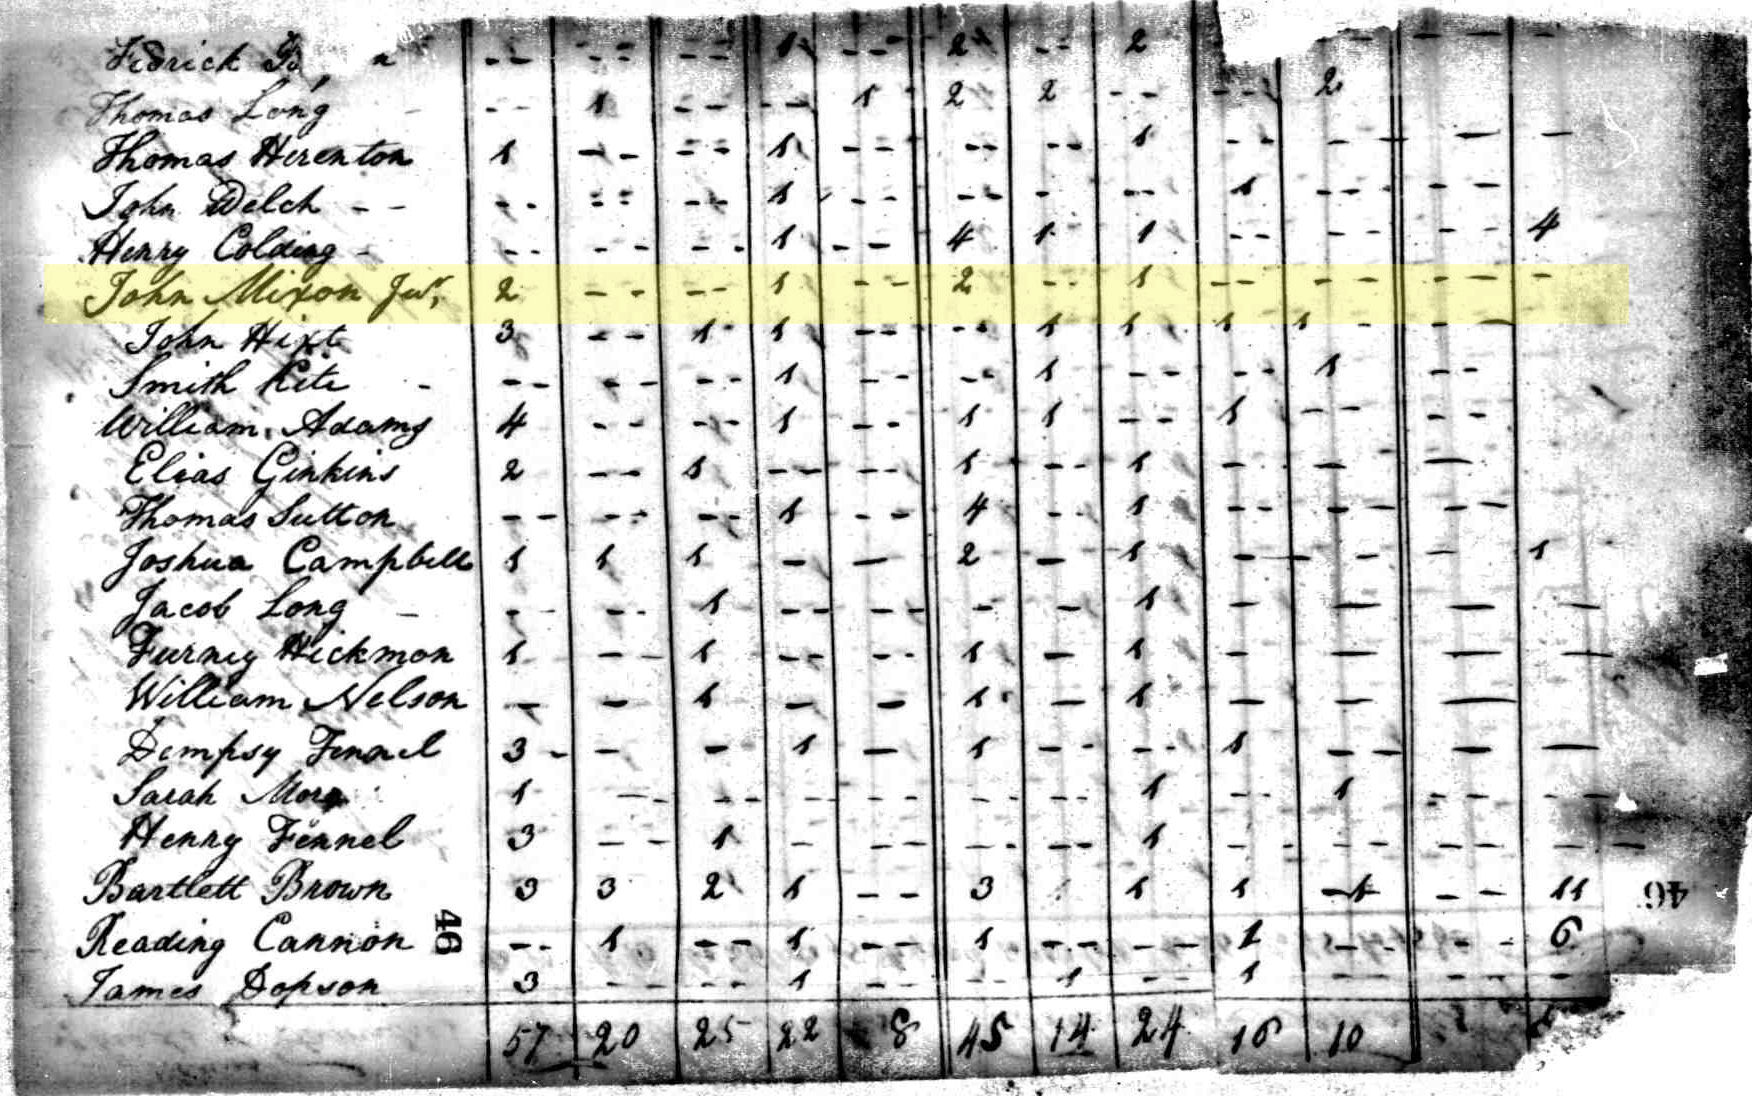 Fedrick - - - - - - 1 - - 2 - - 2 - - - - -
Thomas Long - - - 1 - - - - 1 2 2 - - - - 2
Thomas Herenton 1 - - - - 1 - - - - - - 1 - - - - - - -
John Welch - - - - - - - - 1 - - - - - - - 1 - - - - -
Henry Colding - - - - - - - - 1 - - 4 1 1 - - - - - - 4
John Mixon Jur, 2 - - - - 1 - - 2 - - 1 - - - - - - -
John Hixt 3 - - 1 1 - - - - 1 1 1 1 - - -
Smith Kite - - - - - - - 1 - - - - 1 - - - - 1 - -
William Adams 4 - - - - 1 - - 1 1 - - 1 - - - -
Elias Ginkins 2 - - 1 - - - - 1 - - 1 - - -
Thomas Sutton - - - - - - 1 - - 4 - 1 - - - - - -
Joshua Campbell 1 1 1 - - 2 - 1 - - - 1
Jacob Long - - - - - 1 - - - - - - 1 - - - -
Furney Hickmon 1 - - 1 - - - - 1 - 1 - - - -
William Nelson - - 1 - - 1 - 1 - - -
Dempsy Fennel 3 - - - 1 - 1 - - - - 1 - - - -
Sarah 1 - - - - - - - - - - - - 1 - - 1 - - - -
Henry Fennel 3 - - 1 - - - - - - - 1 - - - - - - -
Bartlett Brown 3 3 2 1 - - 3 1 1 1 - - 11
Reading Cannon 46 - - 1 - - 1 - - 1 - - - - 1 - - - - 6
James Dopson 3 - - - - 1 - - - - 1 - - 1 - - - - -
57 20 25 22 8 45 14 24 16 10